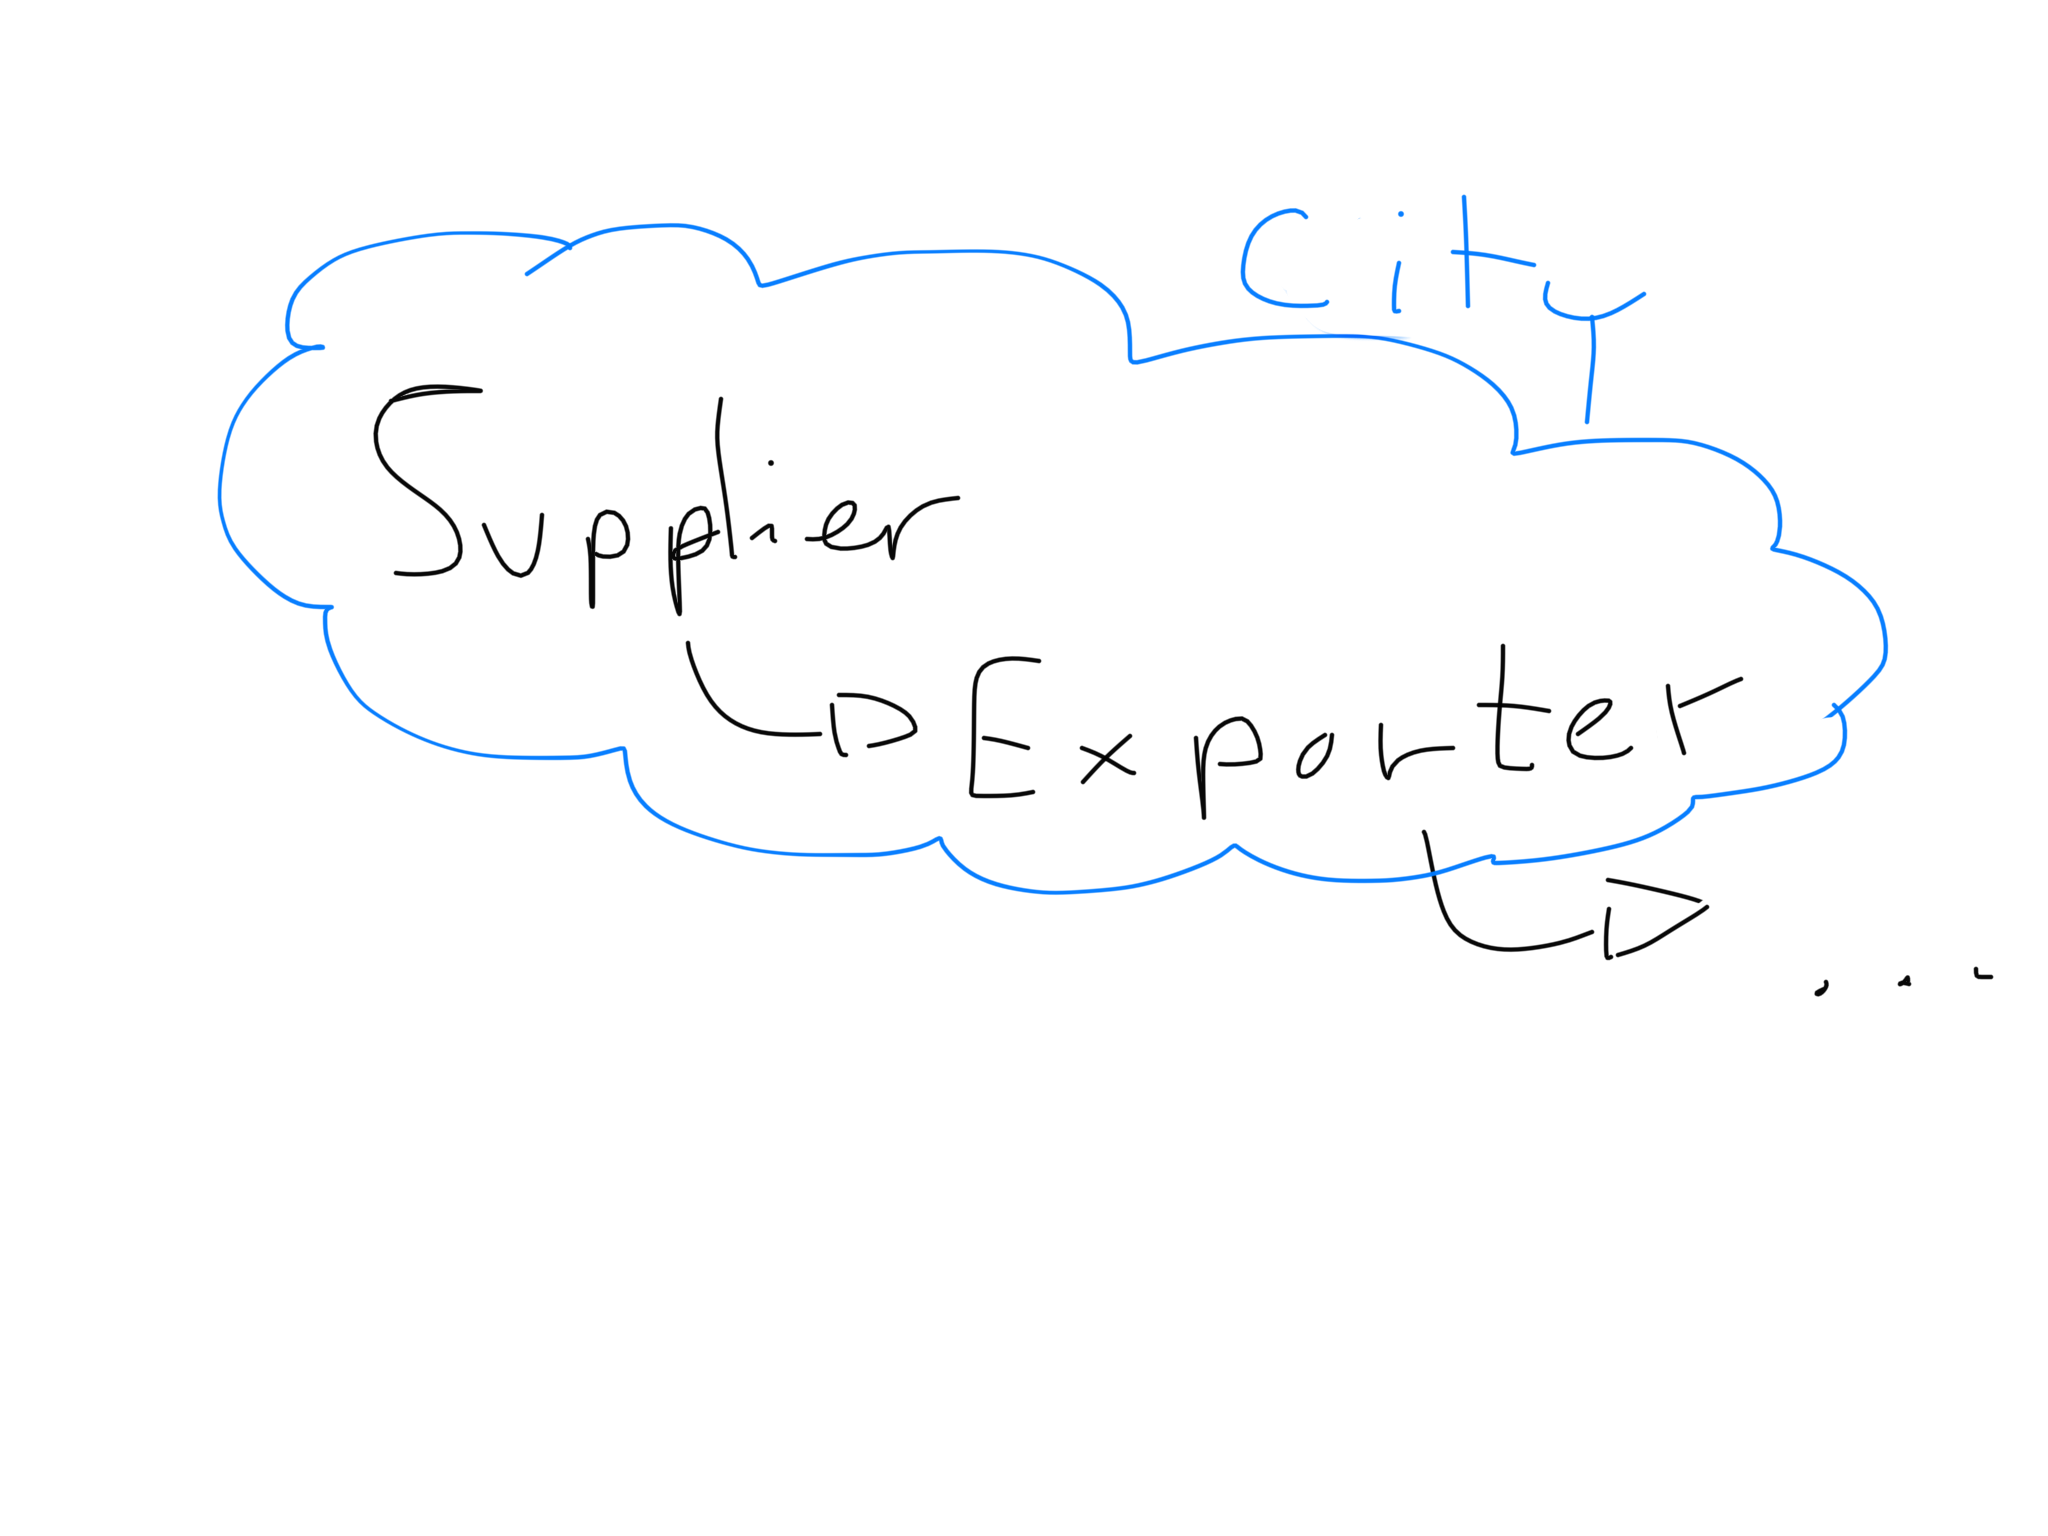 City
Supplier
Exporter
...